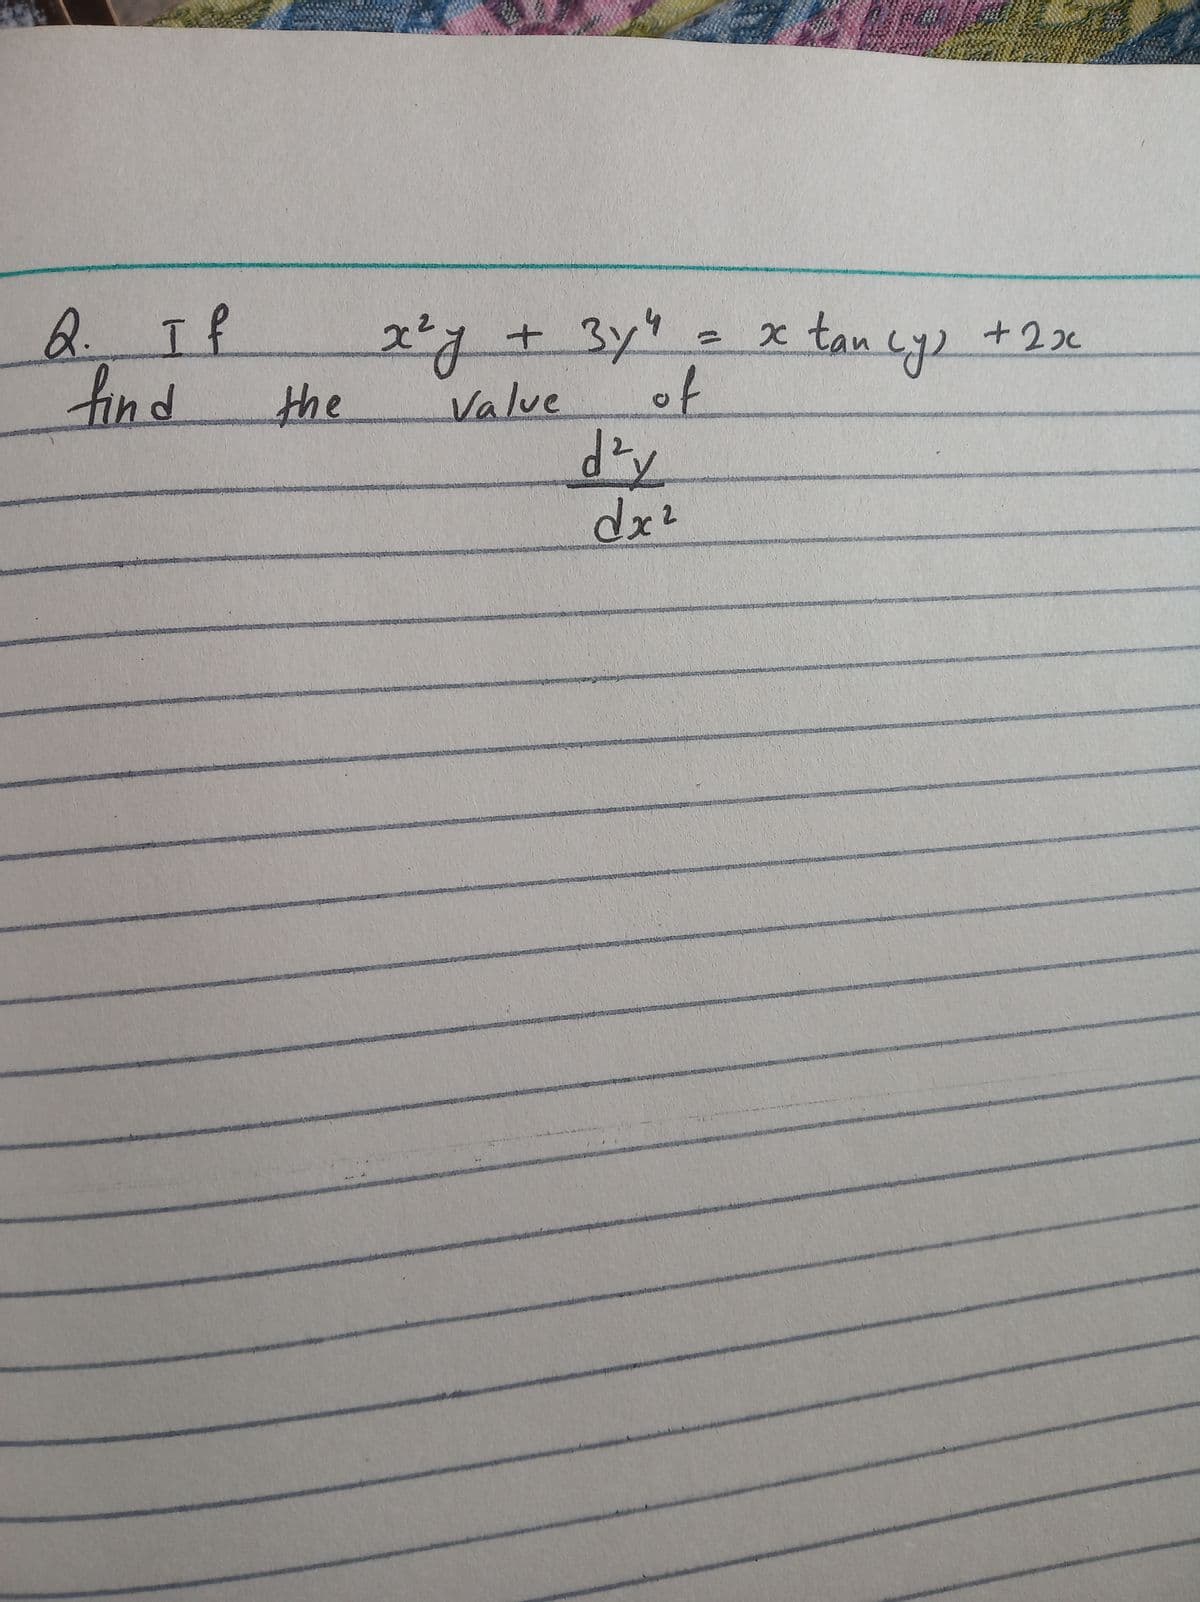 Q. If x²y + 3y⁴ = x tan (y) + 2x
find the value of
d²y
dx²